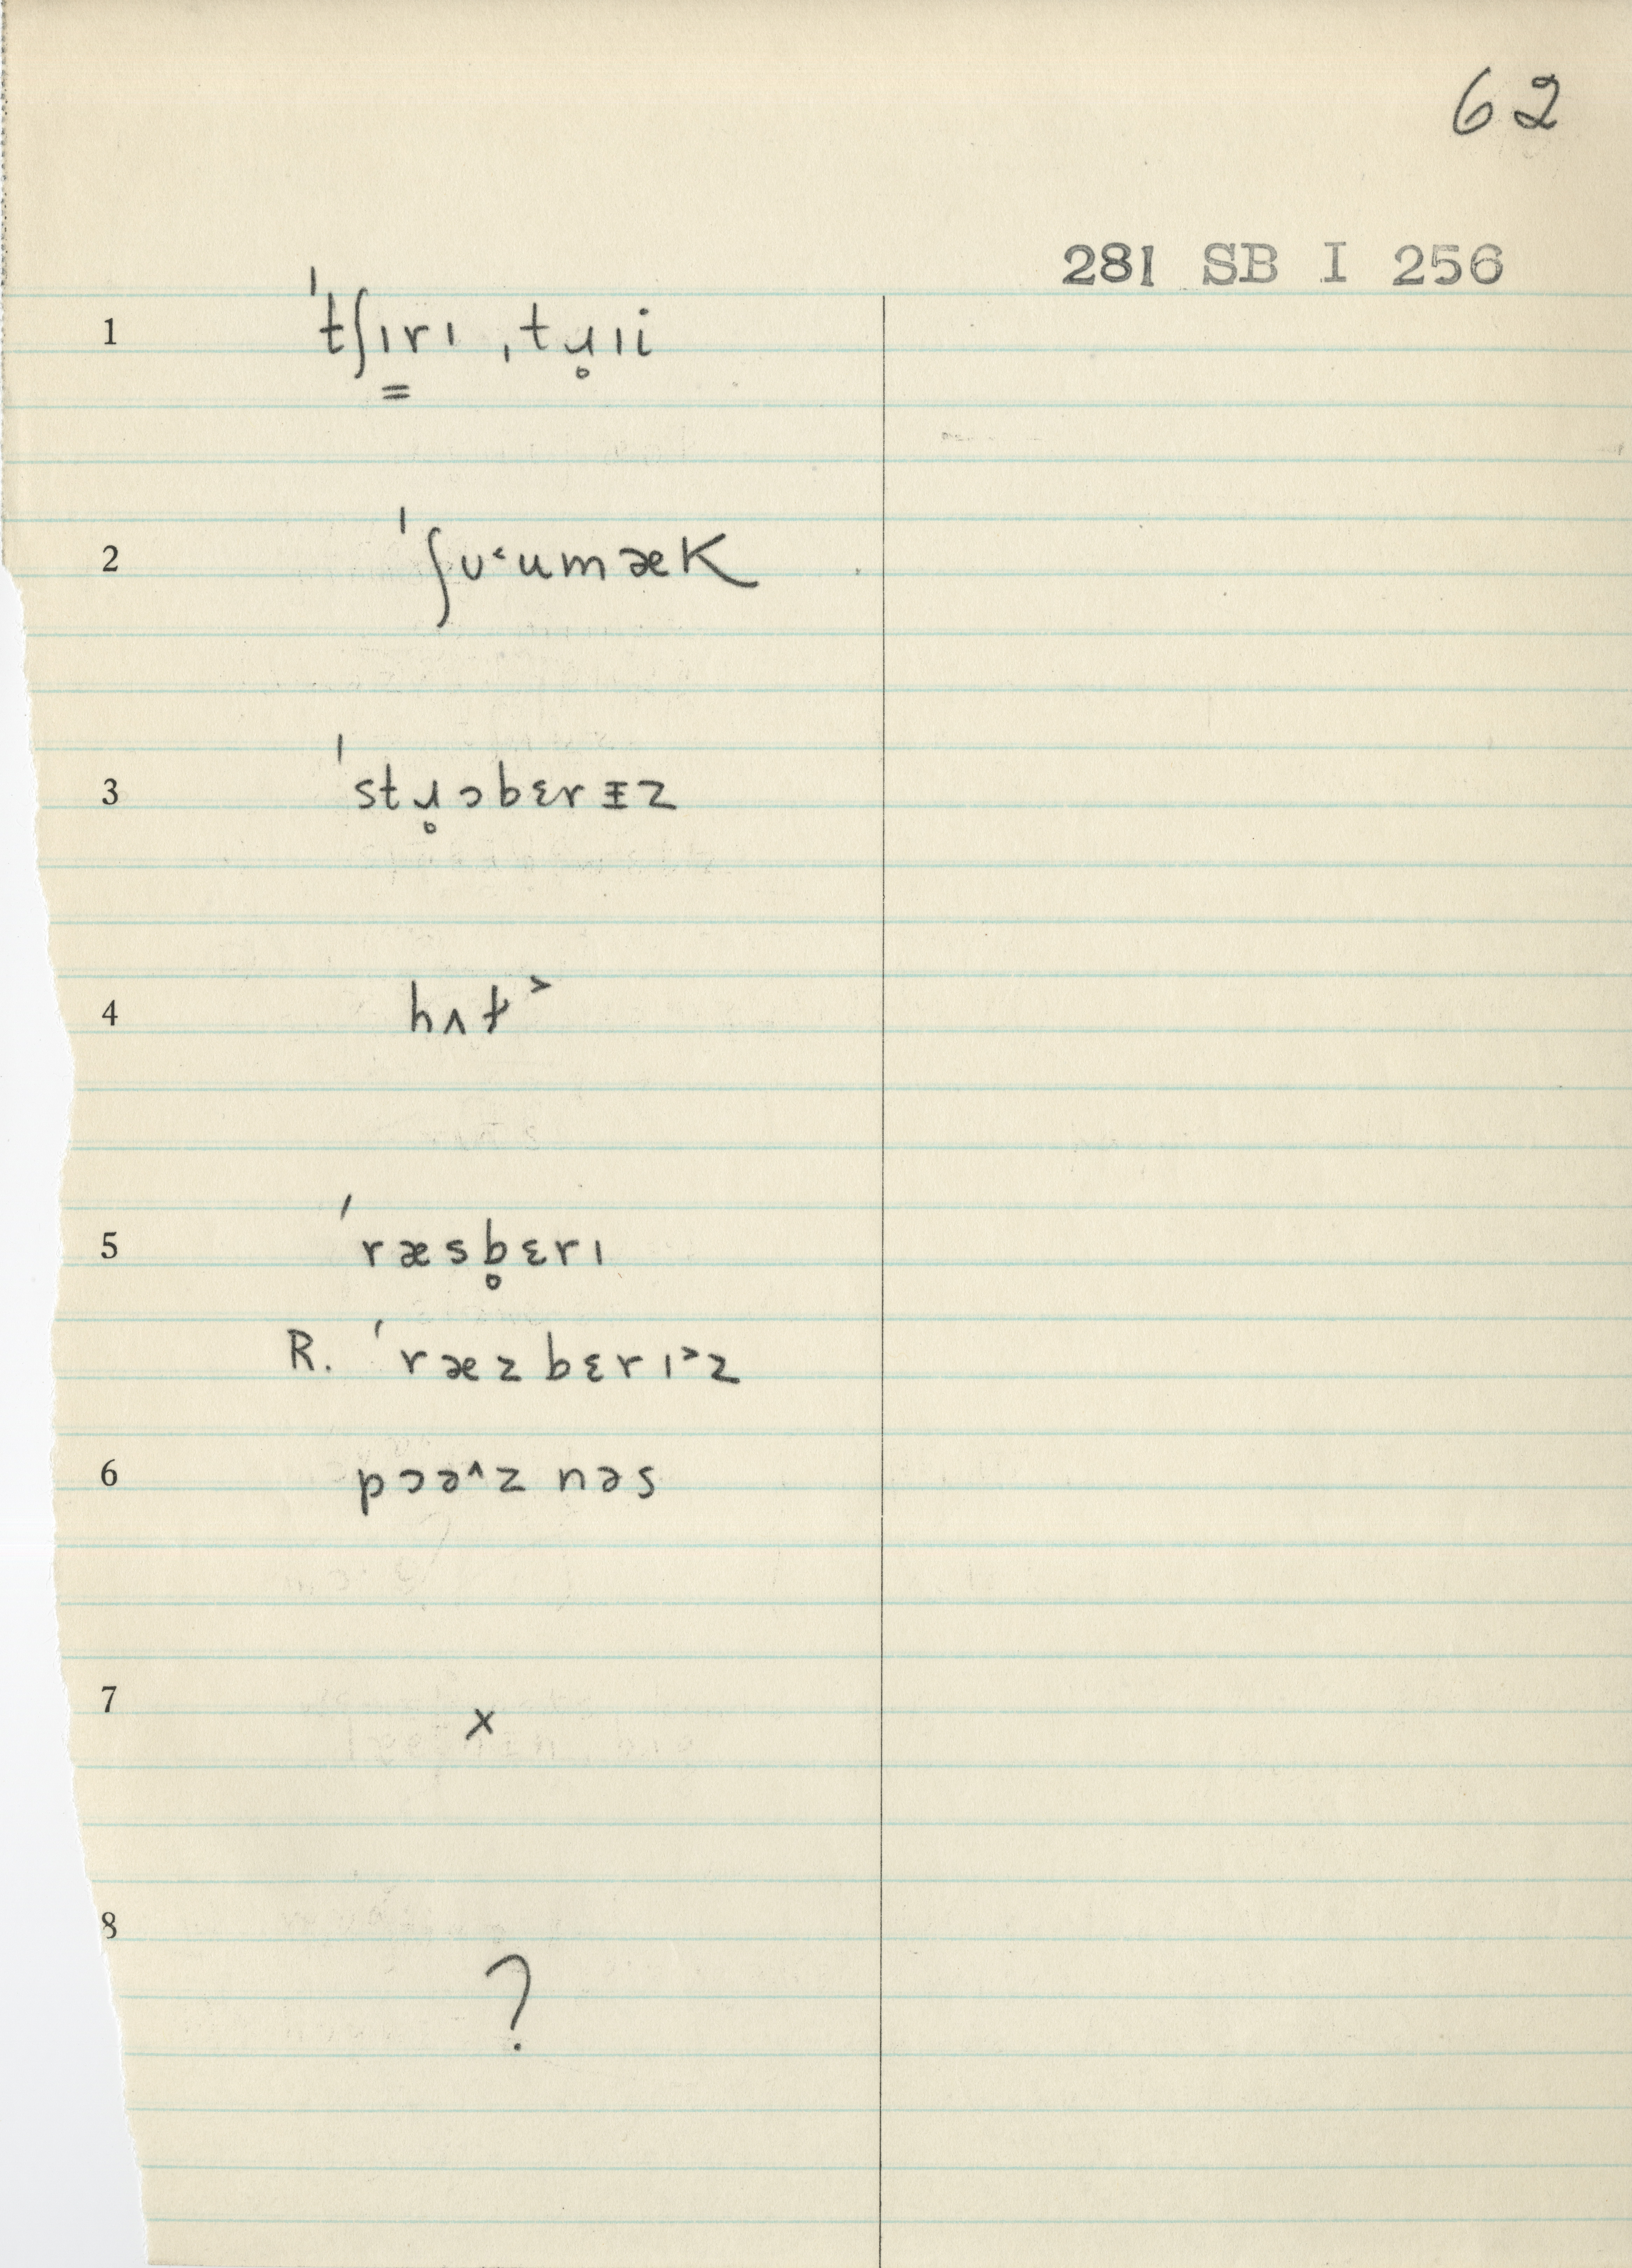 62
281 SB I 256
1 ˈtʃɪ̳rɪ ˌtɹ̥ɪi
2 ˈʃʊ˂umækʼ
3 ˈstɹ̥ɔbɛrɪ̵z
4 hʌɫ˃
5 ˈræsb̥ɛrɪ
R. ˈræzbɛrɪ˃z
6 pɔə˄z nəs
7 x
8 ?